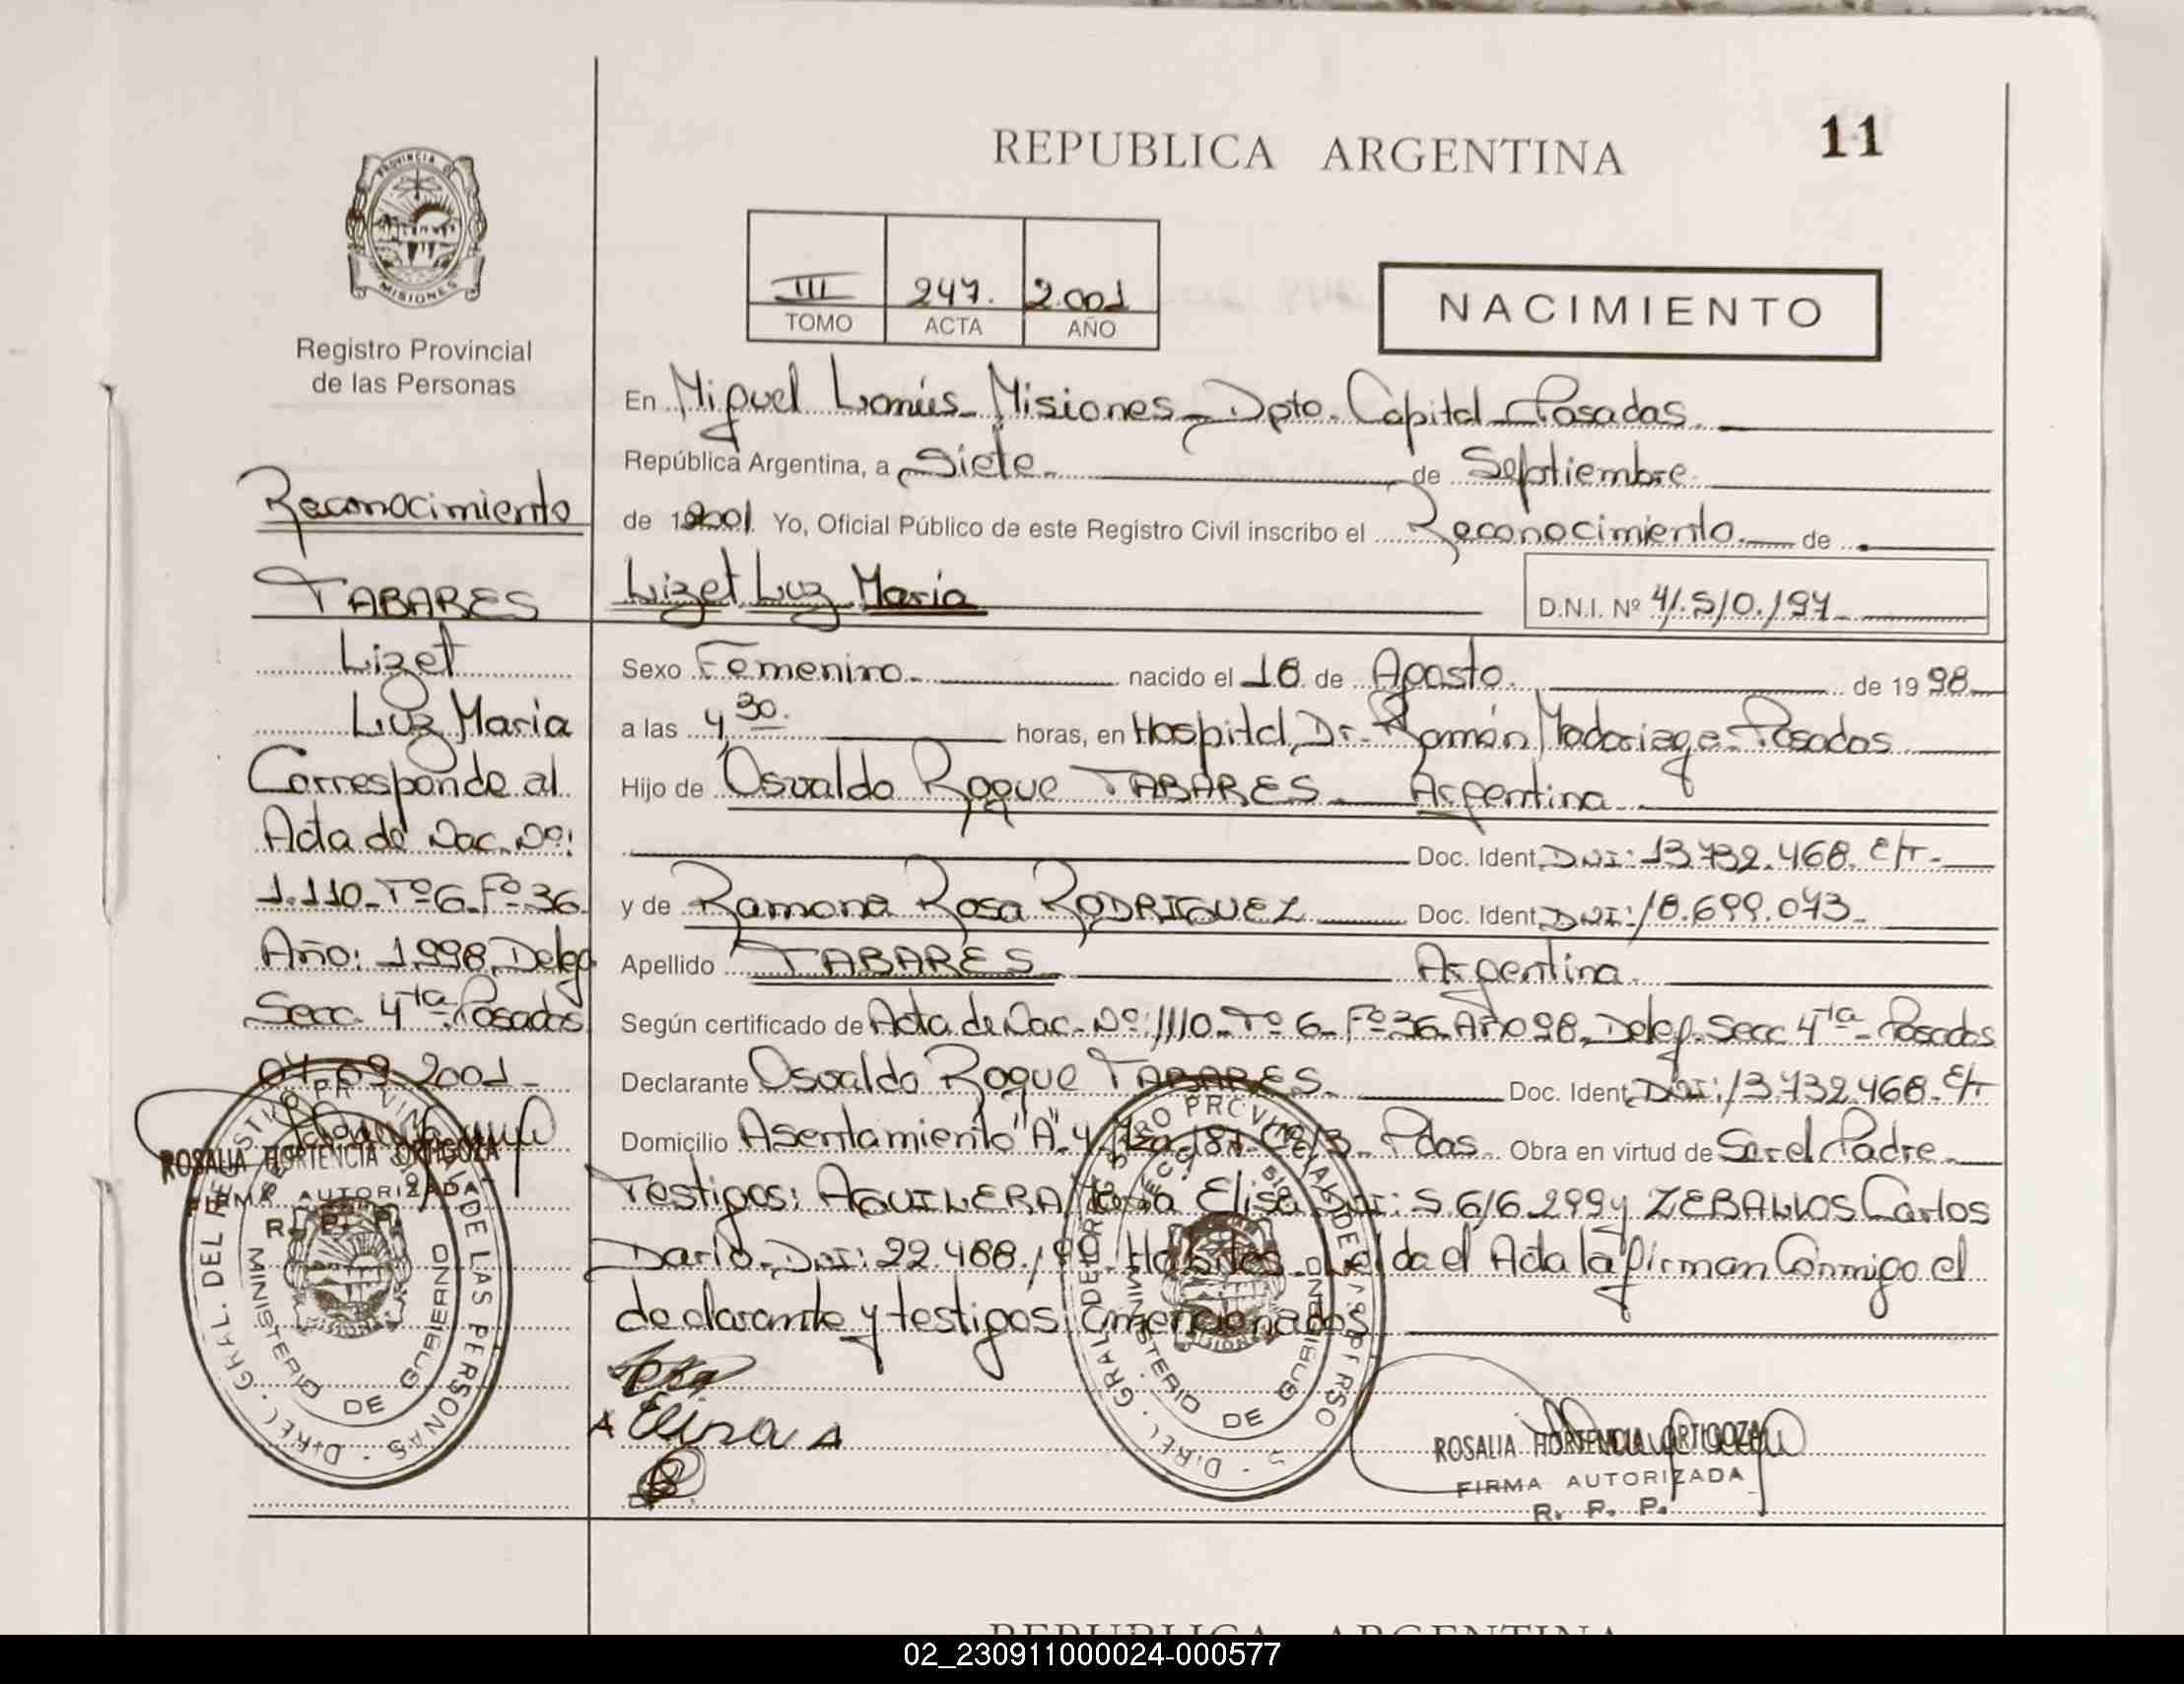 REPUBLICA ARGENTINA
11
PROVINCIA DE
MISIONES
Registro Provincial
de las Personas
III 247. 2.001
TOMO ACTA AÑO
NACIMIENTO
Reconocimiento
TABARES
Lizet
Luz Maria
Corresponde al
Acta de Nac. Nº:
1.110_Tº6_Fº36
Año: 1.998_Deleg
Secc. 4ta Posadas
07_09_2001_
ROSALIA HORTENCIA ORTIGOZA
FIRMA AUTORIZADA
R. P. P.
En Miguel Lanús_Misiones_Dpto. Capital_Posadas.
República Argentina, a Siete. de Septiembre.
de 2001. Yo, Oficial Público de este Registro Civil inscribo el Reconocimiento. de
Lizet Luz Maria D.N.I. Nº 41.510.197
Sexo Femenino. nacido el 18 de Agosto. de 1998
a las 4,30. horas, en Hospital Dr. Ramón Madariaga_Posadas
Hijo de Osvaldo Roque TABARES_ Argentina
Doc. Ident. DNI: 13.732.468. E/T_
y de Ramona Rosa RODRIGUEZ Doc. Ident. DNI: 18.699.073_
Apellido TABARES Argentina.
Según certificado de Acta de Nac_Nº:1110_Tº 6_Fº36_Año 98_Deleg. Secc 4ta_Posadas
Declarante Osvaldo Roque TABARES. Doc. Ident. DNI: 13.732.468_E/T
Domicilio Asentamiento "A"_4 Pdas. Obra en virtud de Ser el Padre_
Testigos: AGUILERA Elisa DNI: 5.616.299 y ZEBALLOS Carlos
Dario_DNI: 22.488. Habiles_Leida el Acta la firman Conmigo el
declarante y testigos mencionados
Elisa A
DIREC. GRAL. DEL REGISTRO PROVINCIAL DE LAS PERSONAS
MINISTERIO DE GOBIERNO
DIREC. GRAL. DEL REGISTRO PROVINCIAL DE LAS PERSONAS
MINISTERIO DE GOBIERNO
ROSALIA HORTENCIA ORTIGOZA
FIRMA AUTORIZADA
R. P. P.
REPUBLICA ARGENTINA
02_230911000024-000577